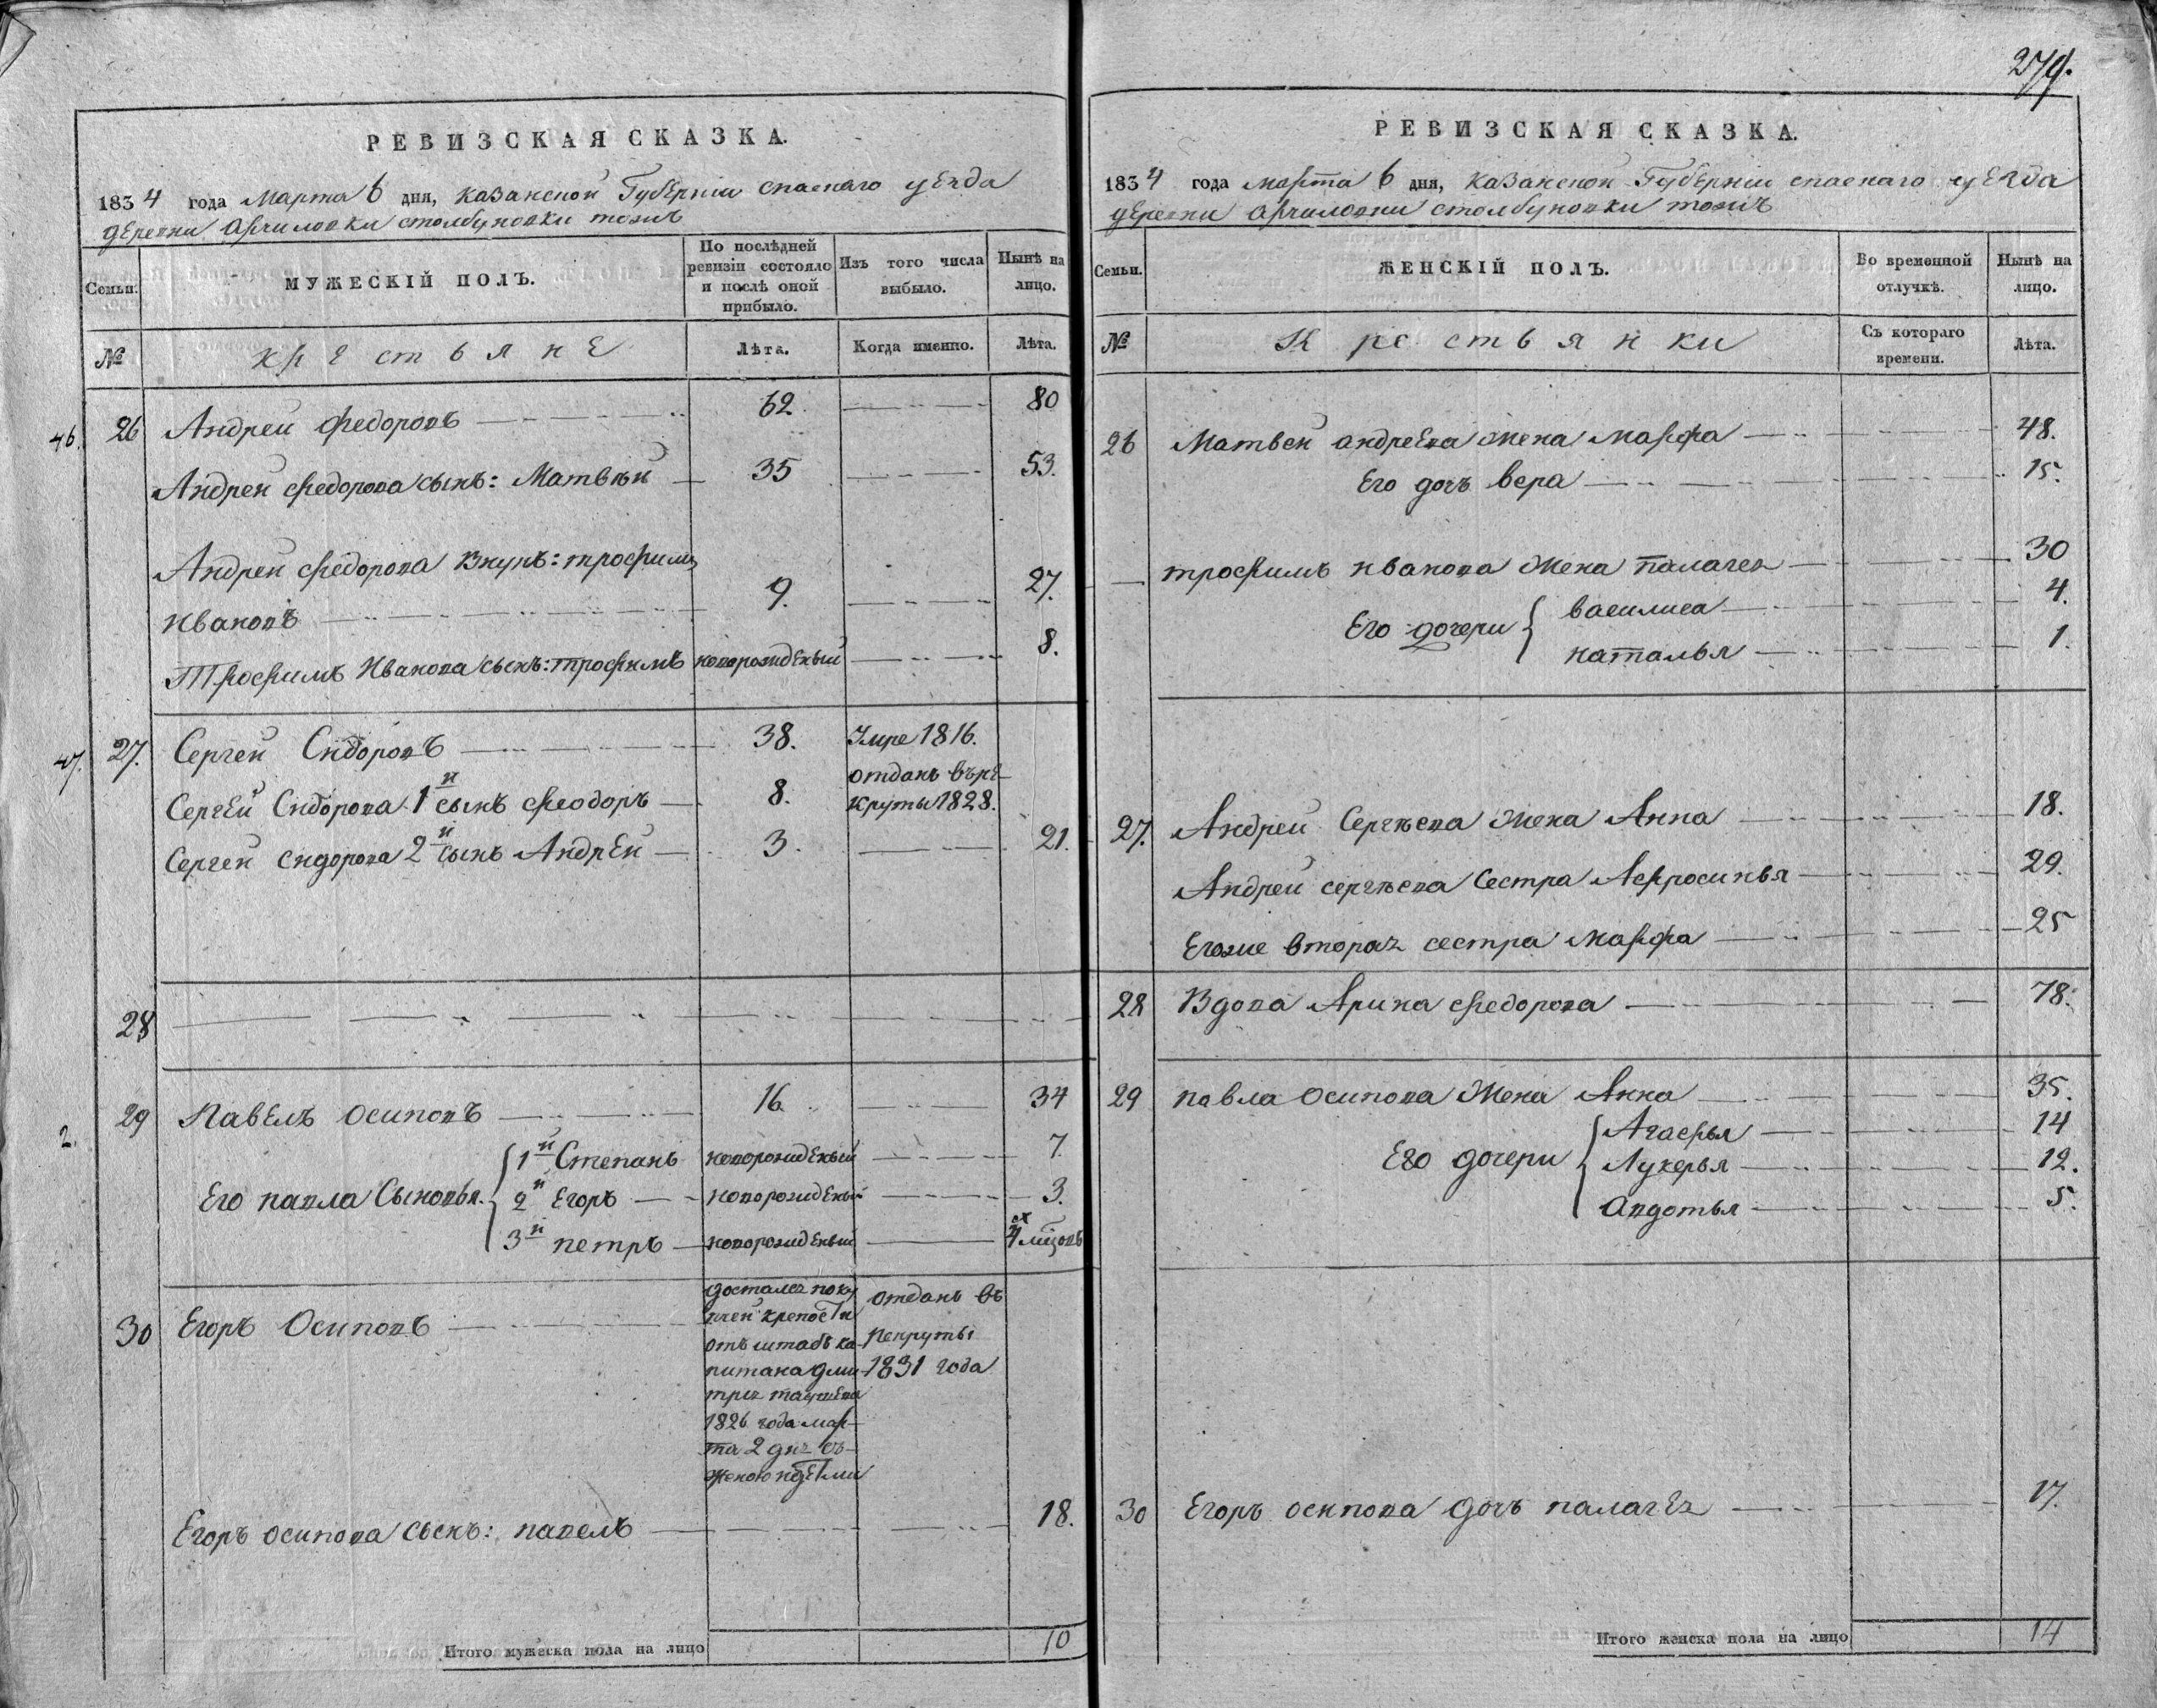 279.
РЕВИЗСКАЯ СКАЗКА.
1834 года марта 6 дня, казанской Губерніи спаскаго уезда
деревни Арчиловки столбуновки тожъ
Семьи.
МУЖЕСКІЙ ПОЛЪ.
По послѣдней ревизіи состояло и послѣ оной прибыло.
Изъ того числа выбыло.
Нынѣ на лицо.
№
крестьяне
Лѣта.
Когда именно.
Лѣта.
46. 26 Андреи Федоровъ 62. 80
Андреи федорова сынъ: Матвѣй 35 53.
Андреи федорова внукъ: трофимъ
Ивановъ 9. 27.
Трофимъ Иванова сынъ: трофимъ новорожденый 8.
47. 27. Сергеи Сидоровъ 38. Умре 1816.
Сергеи Сидорова 1й сынъ феодоръ 8. отданъ въ ре-
круты 1828.
Сергеи сидорова 2й сынъ Андреи 3. 21.
28
2. 29 Павелъ осиповъ 16 34
Его павла Сыновья. 1й Степанъ новорожденый 7.
2й Егоръ новорожденый 3.
3й петръ новорожденый 4х мцовъ
30 Егоръ Осиповъ
достался по ку
пчей крепости
отъ штабъ ка-
питана дми
трея
1826 года мар-
та 2 дня съ
женою и детми
отданъ въ
рекруты
1831 года
Егоръ осипова сынъ: павелъ 18.
Итого мужеска пола на лицо 10
РЕВИЗСКАЯ СКАЗКА.
1834 года марта 6 дня, казанской Губерніи спаскаго уезда
деревни Арчиловки столбуновки тожъ
Семьи.
ЖЕНСКІЙ ПОЛЪ.
Во временной отлучкѣ.
Нынѣ на лицо.
№
Крестьянки
Съ котораго времени.
Лѣта.
26 Матвеи андреева жена марфа 48.
Его дочь вера 15.
трофимъ иванова жена палагея 30
Его дочери василиса 4.
наталья 1.
27. Андреи Сергѣева жена Анна 18.
Андреи сергѣева Сестра Афросинья 29.
Егоже вторая сестра марфа 25
28 Вдова Арина федорова 78.
29 павла осипова жена Анна 35.
Его дочери Агафья 14
Лукерья 12.
Авдотья 5.
30 Егоръ осипова дочь палагея 17.
Итого женска пола на лицо 14